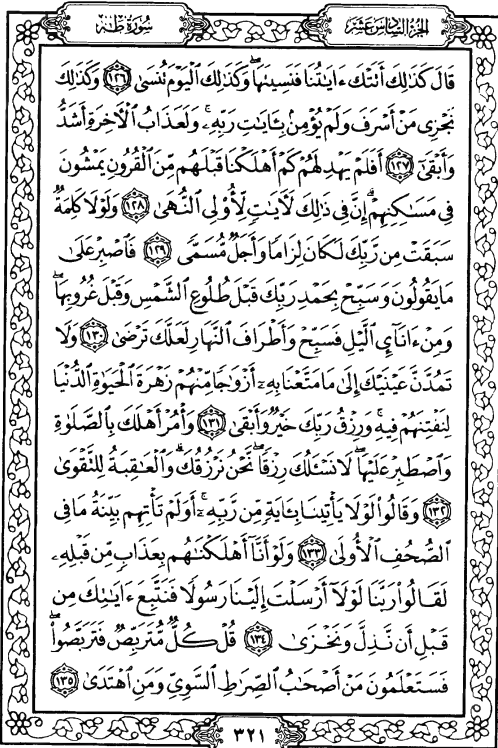 سُورَةُ طه
الجُزْءُ السَّادِسَ عَشَرَ
قَالَ كَذَٰلِكَ أَتَتْكَ ءَايَٰتُنَا فَنَسِيتَهَا ۖ وَكَذَٰلِكَ ٱلْيَوْمَ تُنسَىٰ ﴿١٢٦﴾ وَكَذَٰلِكَ
نَجْزِى مَنْ أَسْرَفَ وَلَمْ يُؤْمِنۢ بِـَٔايَٰتِ رَبِّهِۦ ۚ وَلَعَذَابُ ٱلْـَٔاخِرَةِ أَشَدُّ
وَأَبْقَىٰٓ ﴿١٢٧﴾ أَفَلَمْ يَهْدِ لَهُمْ كَمْ أَهْلَكْنَا قَبْلَهُم مِّنَ ٱلْقُرُونِ يَمْشُونَ
فِى مَسَٰكِنِهِمْ ۗ إِنَّ فِى ذَٰلِكَ لَـَٔايَٰتٍ لِّأُو۟لِى ٱلنُّهَىٰ ﴿١٢٨﴾ وَلَوْلَا كَلِمَةٌ
سَبَقَتْ مِن رَّبِّكَ لَكَانَ لِزَامًا وَأَجَلٌ مُّسَمًّى ﴿١٢٩﴾ فَٱصْبِرْ عَلَىٰ
مَا يَقُولُونَ وَسَبِّحْ بِحَمْدِ رَبِّكَ قَبْلَ طُلُوعِ ٱلشَّمْسِ وَقَبْلَ غُرُوبِهَا ۖ
وَمِنْ ءَانَآئِ ٱلَّيْلِ فَسَبِّحْ وَأَطْرَافَ ٱلنَّهَارِ لَعَلَّكَ تَرْضَىٰ ﴿١٣٠﴾ وَلَا
تَمُدَّنَّ عَيْنَيْكَ إِلَىٰ مَا مَتَّعْنَا بِهِۦٓ أَزْوَٰجًا مِّنْهُمْ زَهْرَةَ ٱلْحَيَوٰةِ ٱلدُّنْيَا
لِنَفْتِنَهُمْ فِيهِ ۚ وَرِزْقُ رَبِّكَ خَيْرٌ وَأَبْقَىٰ ﴿١٣١﴾ وَأْمُرْ أَهْلَكَ بِٱلصَّلَوٰةِ
وَٱصْطَبِرْ عَلَيْهَا ۖ لَا نَسْـَٔلُكَ رِزْقًا ۖ نَّحْنُ نَرْزُقُكَ ۗ وَٱلْعَٰقِبَةُ لِلتَّقْوَىٰ
﴿١٣٢﴾ وَقَالُوا۟ لَوْلَا يَأْتِينَا بِـَٔايَةٍ مِّن رَّبِّهِۦٓ ۚ أَوَلَمْ تَأْتِهِم بَيِّنَةُ مَا فِى
ٱلصُّحُفِ ٱلْأُولَىٰ ﴿١٣٣﴾ وَلَوْ أَنَّآ أَهْلَكْنَٰهُم بِعَذَابٍ مِّن قَبْلِهِۦ
لَقَالُوا۟ رَبَّنَا لَوْلَآ أَرْسَلْتَ إِلَيْنَا رَسُولًا فَنَتَّبِعَ ءَايَٰتِكَ مِن
قَبْلِ أَن نَّذِلَّ وَنَخْزَىٰ ﴿١٣٤﴾ قُلْ كُلٌّ مُّتَرَبِّصٌ فَتَرَبَّصُوا۟ ۖ
فَسَتَعْلَمُونَ مَنْ أَصْحَٰبُ ٱلصِّرَٰطِ ٱلسَّوِىِّ وَمَنِ ٱهْتَدَىٰ ﴿١٣٥﴾
٣٢١